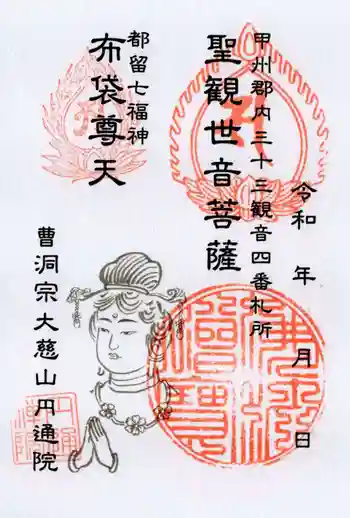 甲州郡内三十三観音四番札所
聖観世音菩薩
令和　年　月　日
都留七福神
布袋尊天
曹洞宗大慈山円通院
佛法僧寳